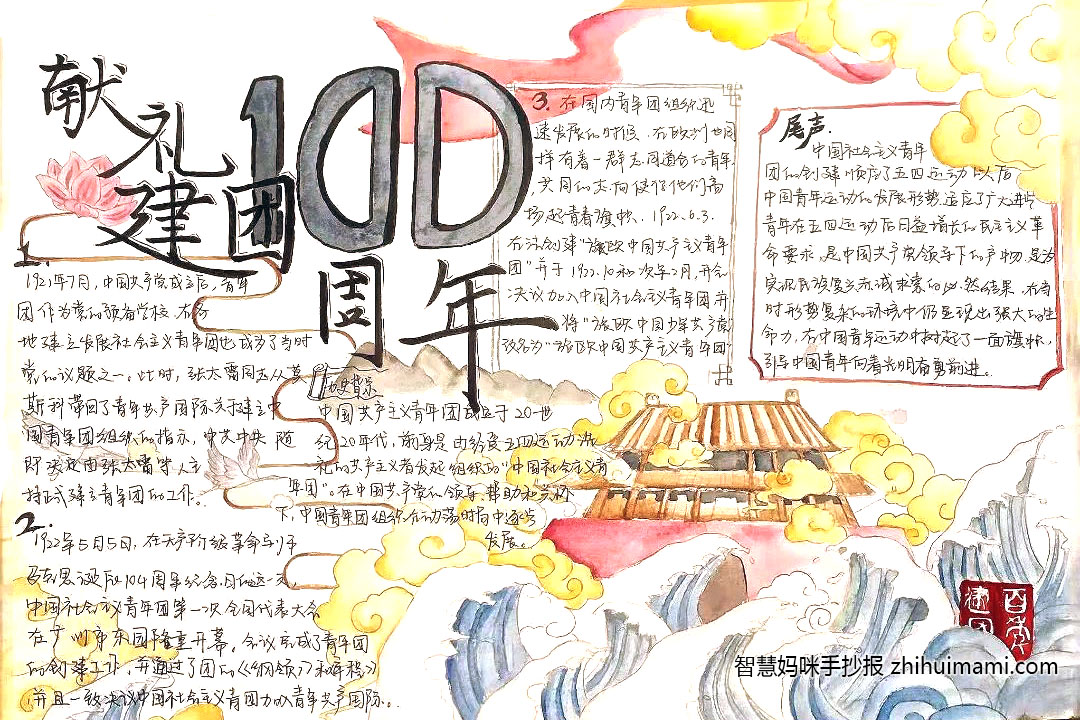 献礼
建团100
周年
1.
1921年7月,中国共产党成立后,青年
团作为党的预备学校,在各
地建立发展社会主义青年团也成为了当时
党的议题之一。此时,张太雷同志从莫
斯科带回了青年共产国际关于建立中
国青年团组织的指示,中共中央随
即决定由张太雷等人主
持正式建立青年团的工作。
2.
1922年5月5日,在无产阶级革命导师
马克思诞辰104周年纪念日的这一天,
中国社会主义青年团第一次全国代表大会
在广州市东园隆重开幕,会议完成了青年团
的创建工作,并通过了团的《纲领》和章程》
,并且一致决议中国社会主义青团加入青年共产国际。
历史背景
中国共产主义青年团成立于20世
纪20年代,前身是由经受五四运动洗
礼的共产主义者发起组织的“中国社会主义青
年团”。在中国共产党的领导、帮助和关怀
下,中国青年团组织在动荡时局中逐步
发展。
3.在国内青年团组织迅
速发展的时候,在欧洲也同
样有着一群志同道合的青年,
共同的志向使得他们高
场起青春旗帜。1922.6.3.
在法创建“旅欧中国共产主义青年
团”并于1922.10和次年2月,开会
决议加入中国社会主义青年团并
将“旅欧中国少年共产党
改名为“旅欧中国共产主义青年团”
尾声.
中国社会主义青年
团的创建顺应了五四运动以后
中国青年运动的发展形势适应了广大进步
青年在五四运动后日益增长的民主主义革
命要求,是中国共产党领导下的产物,是为
实现民族复兴而诚求索的必然结果,在当
时形势复杂的环境中仍显现出强大的生
命力,在中国青年运动中树起了一面旗帜,
引导中国青年向着光明奋勇前进。
百年
建团
智慧妈咪手抄报 zhihuimami.com